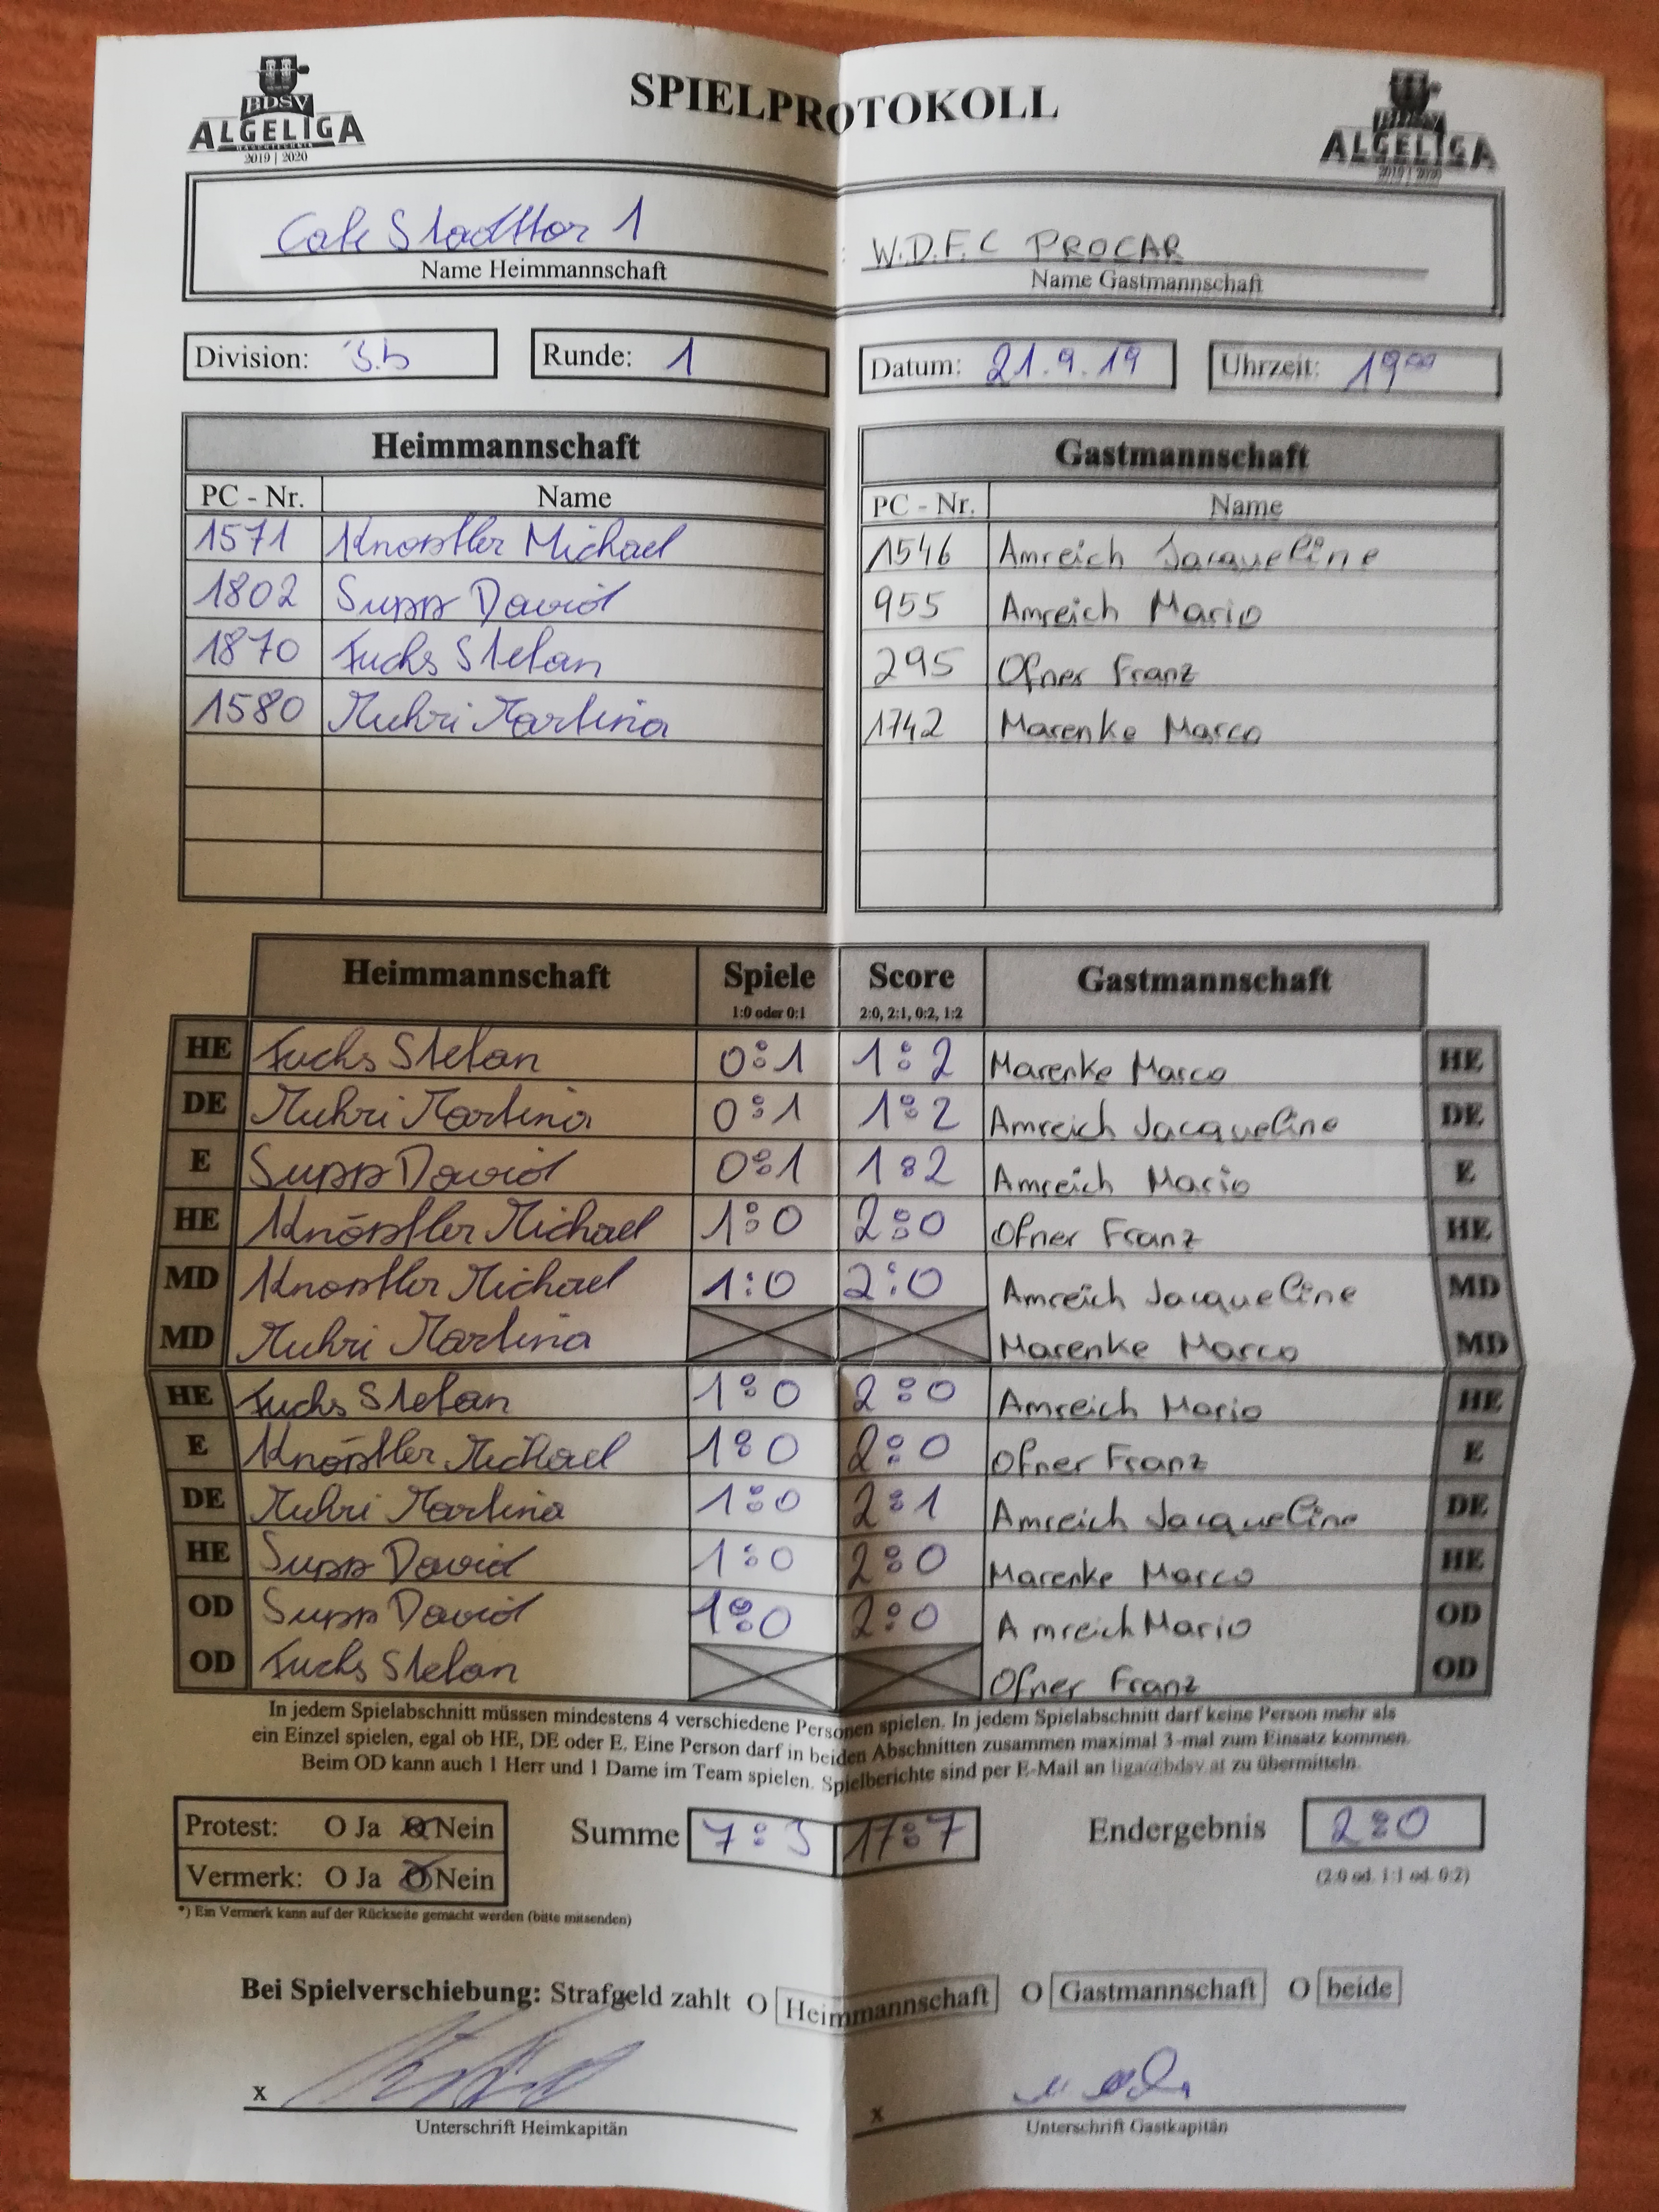 BDSV
ALGELIGA
DASCHTECHNIK
2019 | 2020
SPIELPROTOKOLL
BDSV
ALGELIGA
2019 | 2020
Cafe Stadttor 1 : W.D.F.C PROCAR
Name Heimmannschaft Name Gastmannschaft
Division: 3.b Runde: 1 Datum: 21.9.19 Uhrzeit: 19°°
Heimmannschaft Gastmannschaft
PC - Nr. Name PC - Nr. Name
1571 Knöpfler Michael 1546 Amreich Jacqueline
1802 Supp David 955 Amreich Mario
1870 Fuchs Stefan 295 Ofner Franz
1580 Muhri Martina 1742 Marenke Marco
Heimmannschaft Spiele Score Gastmannschaft
1:0 oder 0:1 2:0, 2:1, 0:2, 1:2
HE Fuchs Stefan 0:1 1:2 Marenke Marco HE
DE Muhri Martina 0:1 1:2 Amreich Jacqueline DE
E Supp David 0:1 1:2 Amreich Mario E
HE Knöpfler Michael 1:0 2:0 Ofner Franz HE
MD Knöpfler Michael 1:0 2:0 Amreich Jacqueline MD
MD Muhri Martina Marenke Marco MD
HE Fuchs Stefan 1:0 2:0 Amreich Mario HE
E Knöpfler Michael 1:0 2:0 Ofner Franz E
DE Muhri Martina 1:0 2:1 Amreich Jacqueline DE
HE Supp David 1:0 2:0 Marenke Marco HE
OD Supp David 1:0 2:0 Amreich Mario OD
OD Fuchs Stefan Ofner Franz OD
In jedem Spielabschnitt müssen mindestens 4 verschiedene Personen spielen. In jedem Spielabschnitt darf keine Person mehr als
ein Einzel spielen, egal ob HE, DE oder E. Eine Person darf in beiden Abschnitten zusammen maximal 3-mal zum Einsatz kommen.
Beim OD kann auch 1 Herr und 1 Dame im Team spielen. Spielberichte sind per E-Mail an liga@bdsv.at zu übermitteln.
Protest: O Ja O Nein Summe 7:3 17:7 Endergebnis 2:0
Vermerk: O Ja O Nein (2:0 od. 1:1 od. 0:2)
*) Ein Vermerk kann auf der Rückseite gemacht werden (bitte mitsenden)
Bei Spielverschiebung: Strafgeld zahlt O Heimmannschaft O Gastmannschaft O beide
x x
Unterschrift Heimkapitän Unterschrift Gastkapitän